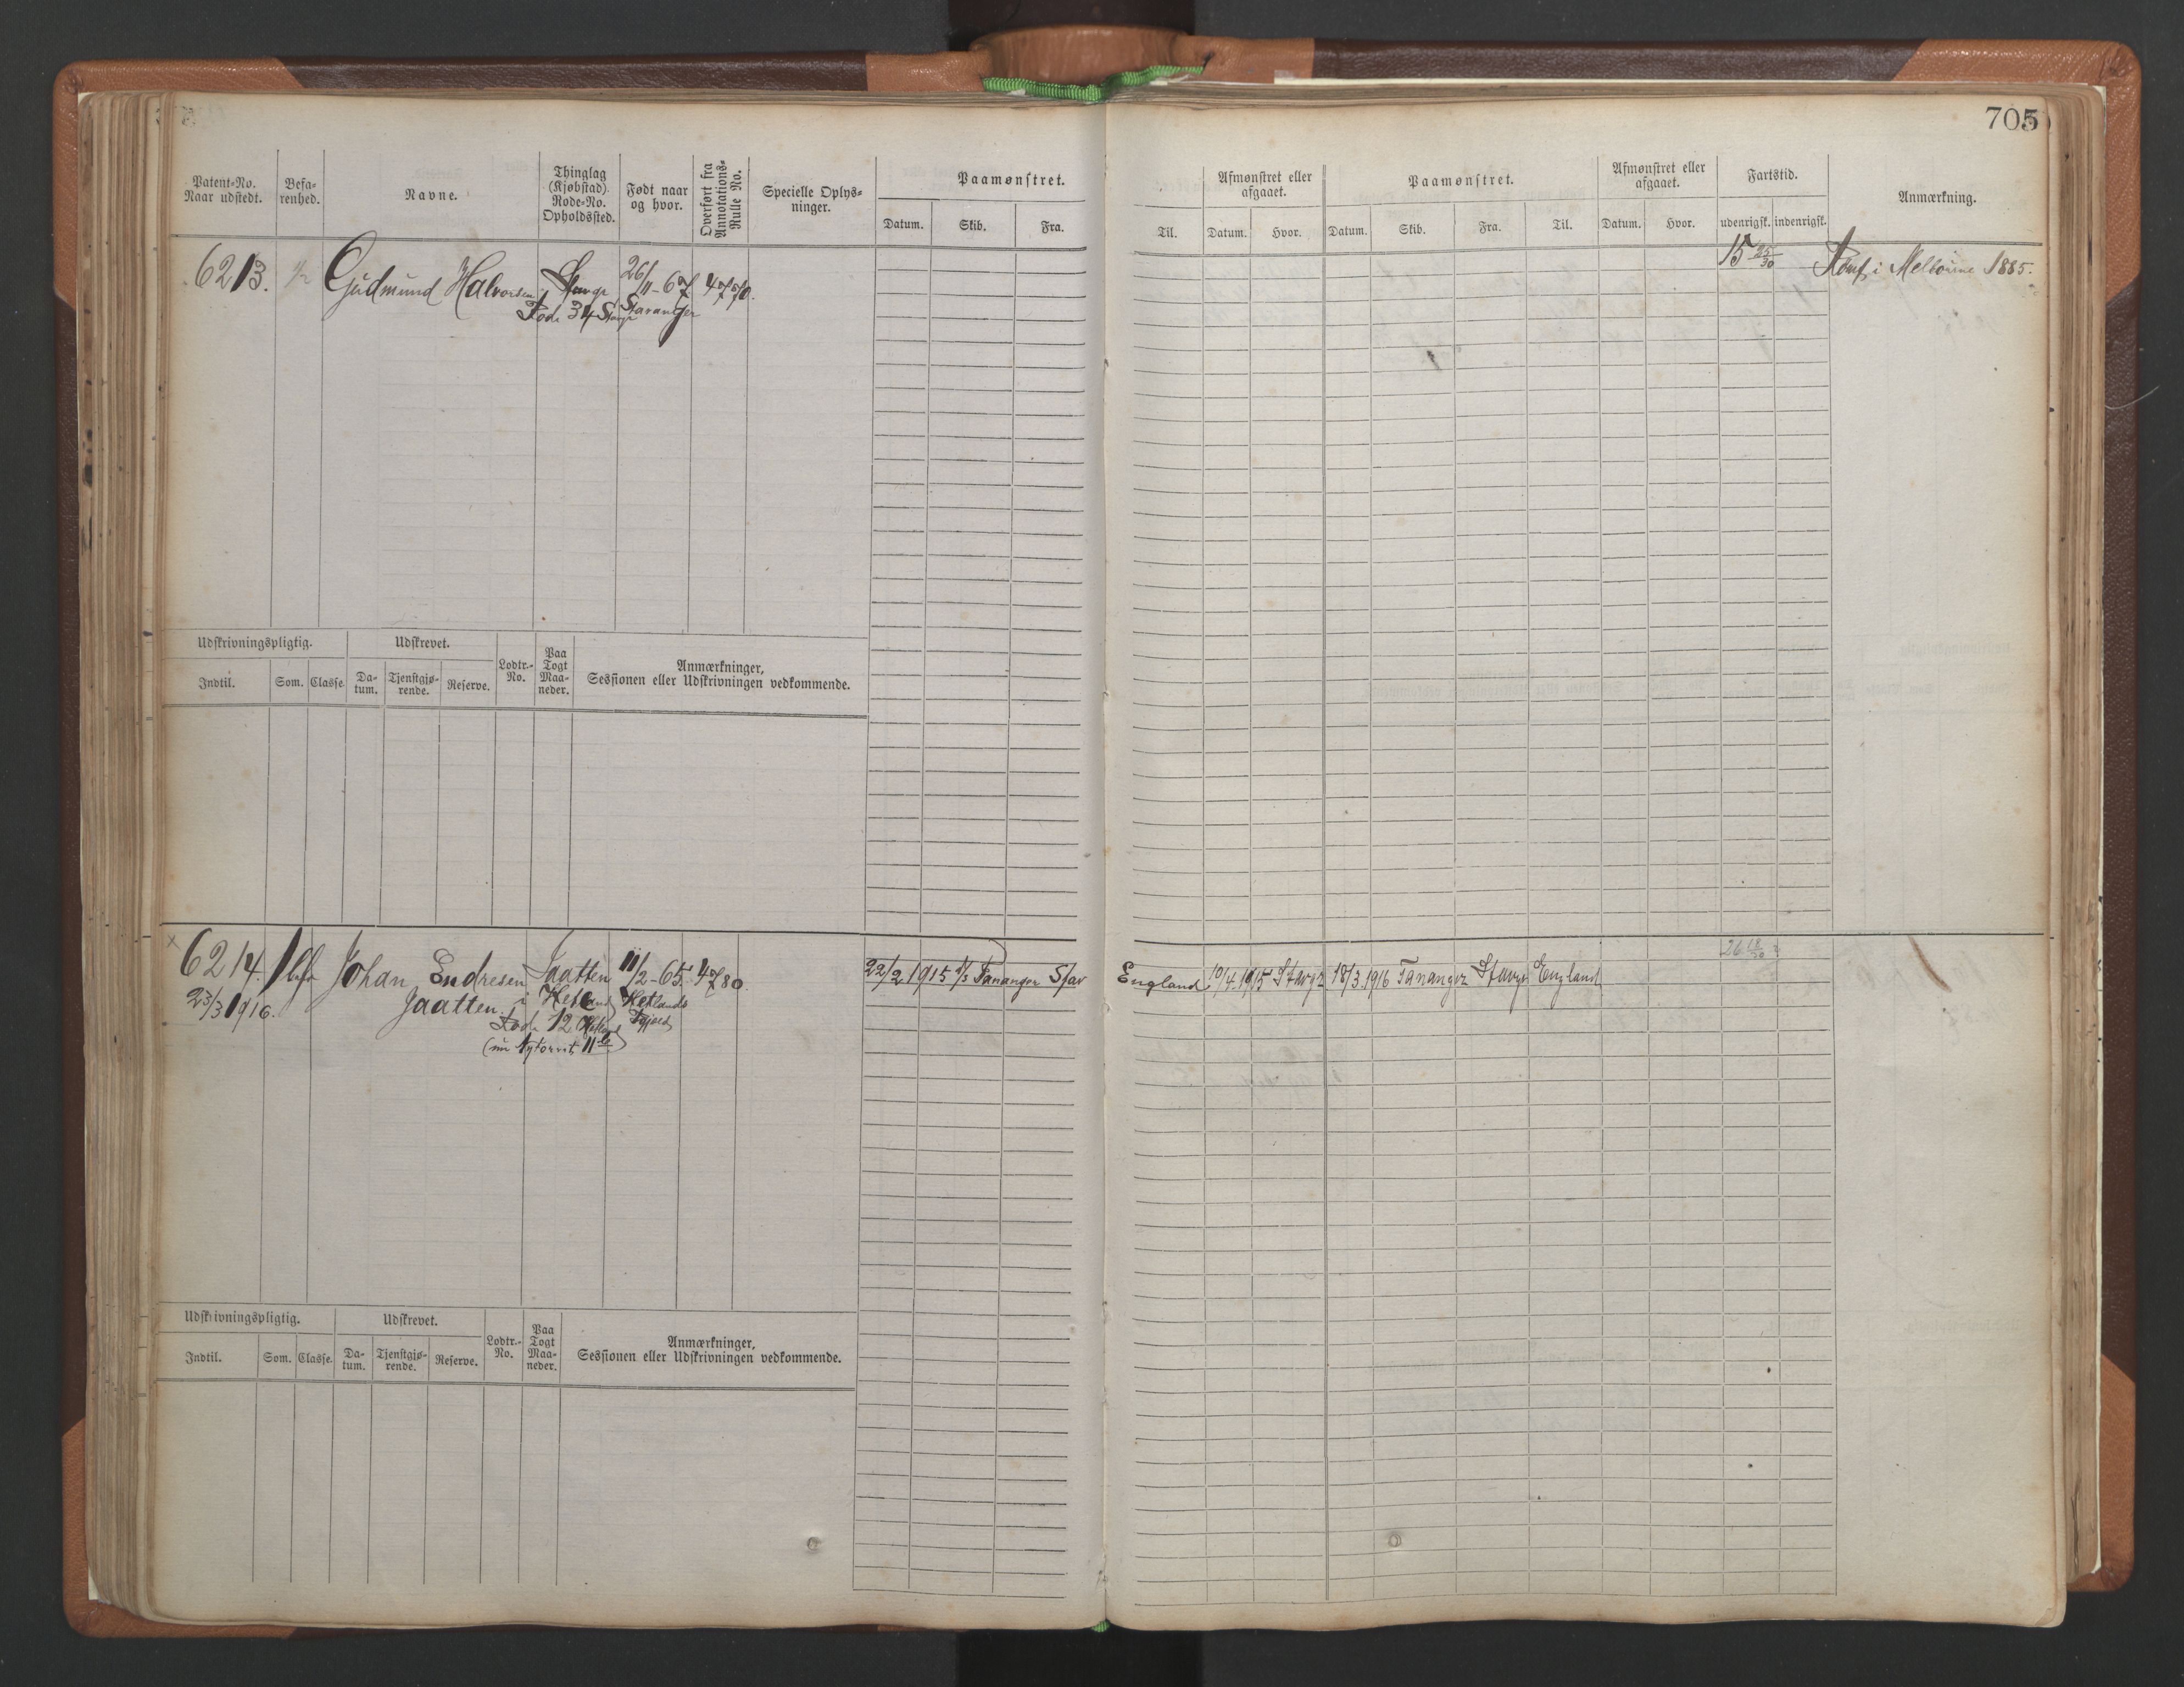 705
Patent-No. Naar udstedt.
Befarenhed.
Navne.
Thinglag (Kjøbstad). Rode-No. Opholdssted.
Født naar og hvor.
Overført fra Annotations-Rulle No.
Specielle Oplysninger.
Paamønstret.
Datum. Skib. Fra.
Til.
Afmønstret eller afgaaet.
Datum. Hvor.
Paamønstret.
Datum. Skib. Fra. Til.
Afmønstret eller afgaaet.
Datum. Hvor.
Fartstid.
udenrigsk. indenrigsk.
Anmærkning.
6213. 1/2 Gudmund Halvorsen Stavgr 26/11-67 4770.
Rode 34 Stavgr Stavanger
15 25/30
Rømt i Melbourne 1885.
Udskrivningspligtig.
Indtil. Som. Classe
Udskrevet.
Datum. Tjenstgjørende. Reserve.
Lodtr.-No.
Paa Togt Maaneder.
Anmærkninger, Sessionen eller Udskrivningen vedkommende.
x
6214. 1 bef Johan Endresen Jaatten 11/2-65. 4780.
23/3 1916. Jaatten. i Hetland Hetlands
Rode 12
(nu Nytorvet 11 b)
22/2 1915 Tananger Stav England 10/4.1915 Stavgr 18/3.1916 Tananger Stavgr England
26 18/30
Udskrivningspligtig.
Indtil. Som. Classe
Udskrevet.
Datum. Tjenstgjørende. Reserve.
Lodtr.-No.
Paa Togt Maaneder.
Anmærkninger, Sessionen eller Udskrivningen vedkommende.